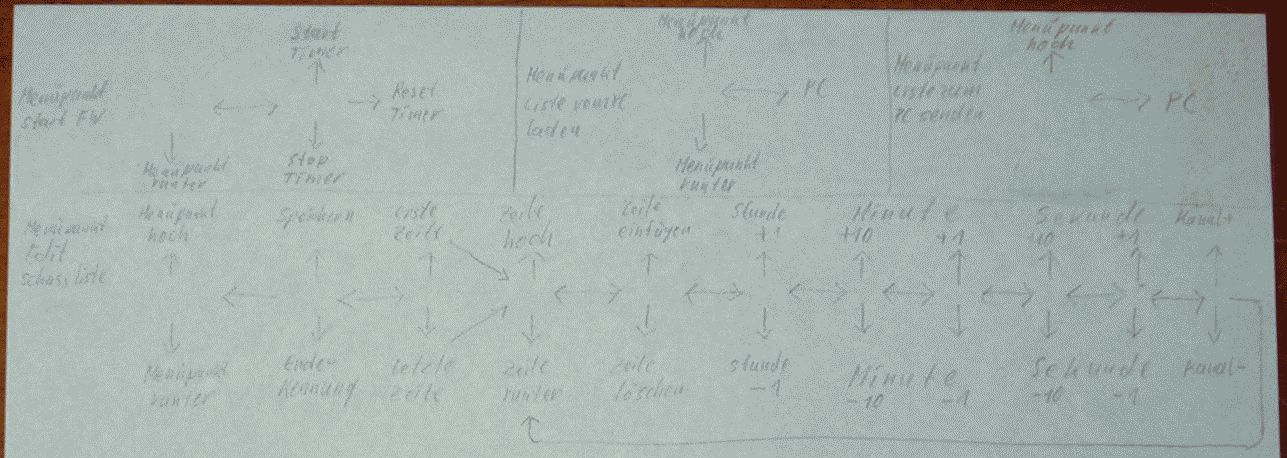 Menüpunkt
start FW
Start
Timer
Reset
Timer
Menüpunkt
runter
Stop
Timer
Menüpunkt
hoch
Menüpunkt
Liste vom PC
laden
PC
Menüpunkt
runter
Menüpunkt
hoch
Menüpunkt
Liste zum
PC senden
PC
Menüpunkt
Edit
Schussliste
Menüpunkt
hoch
Speichern
erste
Zeile
Zeile
hoch
Zeile
einfügen
Stunde
+1
Minute
+10 +1
Sekunde
+10 +1
Kanal+
Menüpunkt
runter
Ende-
Kennung
Letzte
Zeile
Zeile
runter
Zeile
löschen
Stunde
-1
Minute
-10 -1
Sekunde
-10 -1
Kanal-